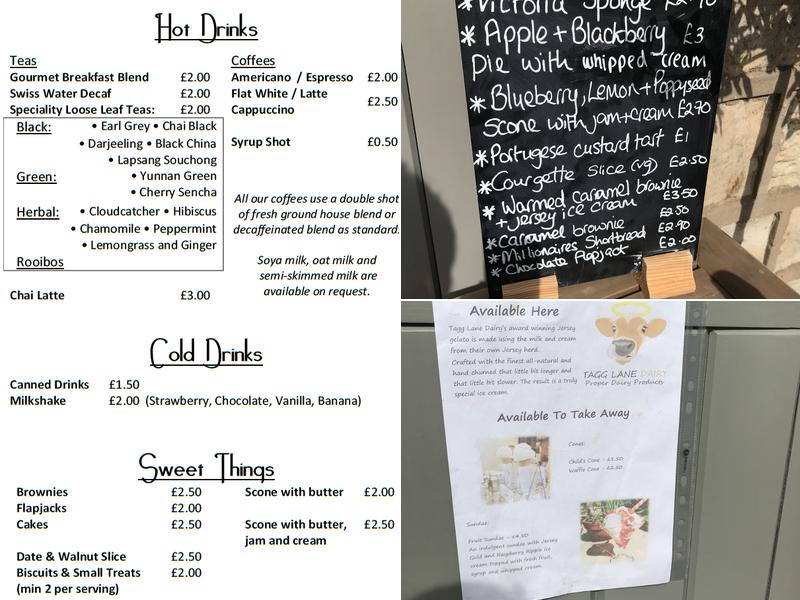 Hot Drinks
Teas
Gourmet Breakfast Blend £2.00
Swiss Water Decaf £2.00
Speciality Loose Leaf Teas: £2.00
Black: • Earl Grey • Chai Black
• Darjeeling • Black China
• Lapsang Souchong
Green: • Yunnan Green
• Cherry Sencha
Herbal: • Cloudcatcher • Hibiscus
• Chamomile • Peppermint
• Lemongrass and Ginger
Rooibos
Chai Latte £3.00
Coffees
Americano / Espresso £2.00
Flat White / Latte
Cappuccino £2.50
Syrup Shot £0.50
All our coffees use a double shot
of fresh ground house blend or
decaffeinated blend as standard.
Soya milk, oat milk and
semi-skimmed milk are
available on request.
Cold Drinks
Canned Drinks £1.50
Milkshake £2.00 (Strawberry, Chocolate, Vanilla, Banana)
Sweet Things
Brownies £2.50
Flapjacks £2.00
Cakes £2.50
Date & Walnut Slice £2.50
Biscuits & Small Treats £2.00
(min 2 per serving)
Scone with butter £2.00
Scone with butter, £2.50
jam and cream
* Victoria Sponge
* Apple + Blackberry £3
Pie with whipped cream
* Blueberry, Lemon + Poppyseed
Scone with jam + cream £2.90
* Portugese custard tart £1
* Courgette Slice (vg) £2.50
* Warmed caramel brownie
+ Jersey ice cream £3.50
* Caramel brownie £2.50
* Millionaires Shortbread £2.90
* Chocolate Flapjack £2.00
Available Here
Tagg Lane Dairy's award winning Jersey
gelato is made using the milk and cream
from their own Jersey herd.
Crafted with the finest all-natural and
hand churned that little bit longer and
that little bit slower. The result is a truly
special ice cream.
TAGG LANE DAIRY
Proper Dairy Products
Available To Take Away
Cones:
Child's Cone - £1.50
Waffle Cone - £2.50
Sundae:
Fruit Sundae - £4.50
An indulgent sundae with Jersey
Gold and Raspberry Ripple ice
cream topped with fresh fruit,
syrup and whipped cream.